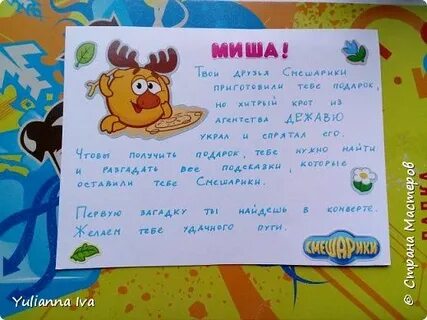 МИША!
Твои друзья Смешарики
приготовили тебе подарок,
но хитрый крот из
агентства ДЕЖАВЮ
украл и спрятал его.
Чтобы получить подарок, тебе нужно найти
и разгадать все подсказки, которые
оставили тебе Смешарики.
Первую загадку ты найдешь в конверте.
Желаем тебе удачного пути.
СМЕШАРИКИ
ПАПКА
Yulianna Iva
© Страна Мастеров